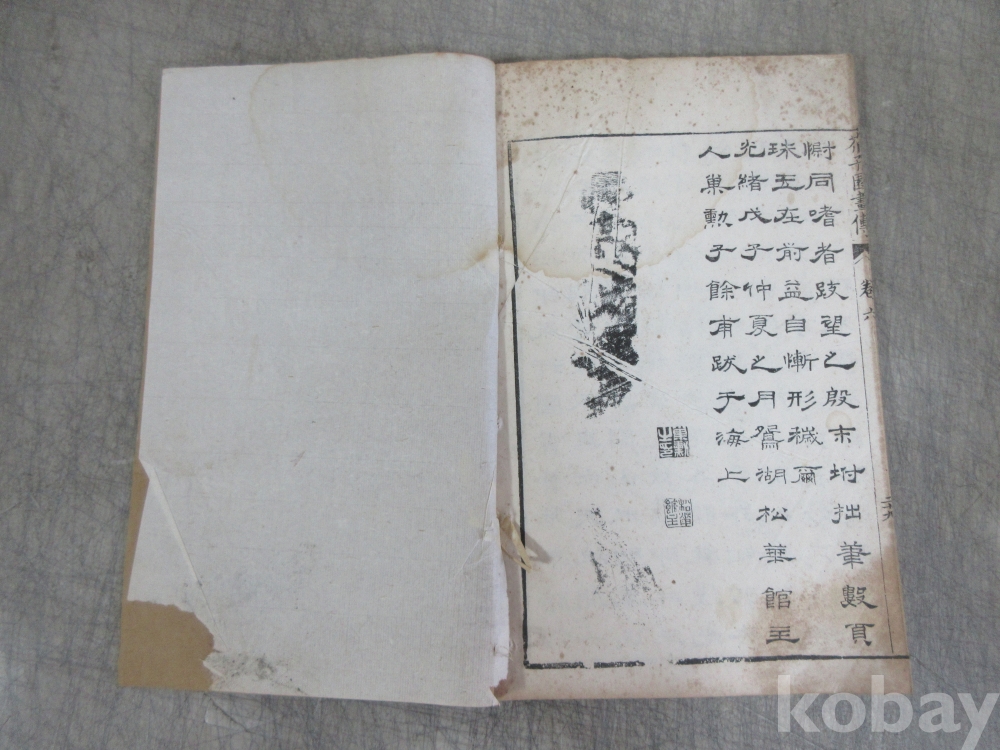 芥子園畫傳 卷六
慰同嗜者跂望之殷末坿拙筆數頁
珠玉在前益自慚形穢爾
光緒戊子仲夏之月鴛湖松華館主
人巢勲子餘甫跋于海上
巢勳之印
kobay